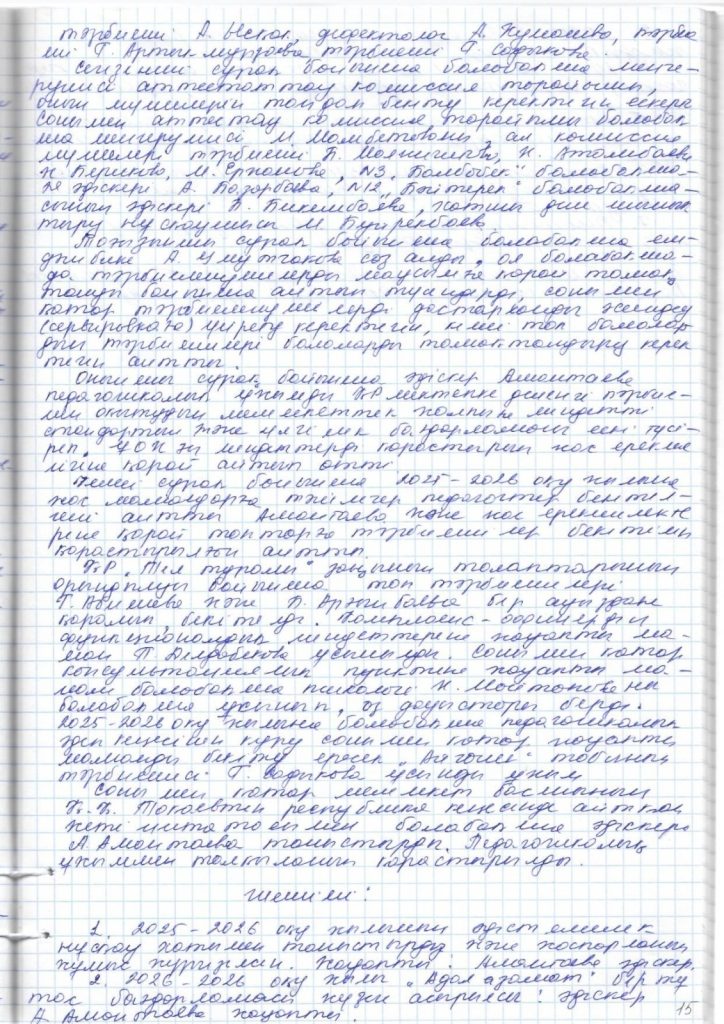 тәрбиеші А. Ысқақ, дефектолог А. Жумашева, тәрбие
ші Г. Артықмурзаева тәрбиеші Г. Садыкова.
Сегізінші сұрақ бойынша балабақша меңге-
рушісі аттестаттау комиссия төрайымы,
оның мүшелерін таңдап бекіту керектігін ескере
сонымен аттестау комиссия төрайымы балабақ
ша меңгерушісі М. Мамбетованы, ал комиссия
мүшелері тәрбиеші Қ. , Н. Атамбаева
Н. Берикова, М. , №3 " балабақша-
ға әдіскері А. Назарбаева, №12 „Бәйтерек" балабақша-
сының әдіскері К. Бикембаева, хатшы дене шынық
тыру нұсқаушысы М.
Тоғызыншы сұрақ бойынша балабақша ем-
дәмбике А. сөз алды, ол балабақша-
да тәрбиеленушілерді маусымға қарай тамақ
тануы бойынша айтып түсіндірді, сонымен
қатар тәрбиеленушілерді дастарханды жинау
(сервировкаға) үйрету керектігін, кіші топ балалар
ды тәрбиешілері балаларды тамақтандыру керек
тігін айтты.
Оныншы сұрақ бойынша әдіскер Амантаева
педагогикалық ұжымды ҚР мектепке дейінгі тәрбие-
мен оқытудың мемлекеттік жалпыға міндетті
стандартын және үлгілік бағдарламаны еске түсі-
ріп. ҰОҚ-ны міндеттерді қарастырып жас ерекше
лігіне қарай айтып өтті.
Келесі сұрақ бойынша 2025-2026 оқу жылына
жас мамандарға тәлімгер педагогтар бекітіл-
гені айтты Амантаева және жас ерекшелікте
ріне қарай топтарға тәрбиешілер бекітіліп
қарастырылғаны айтты.
ҚР „Тіл туралы" заңының талаптарының
орындалуы бойынша топ тәрбиешілері
Г. Абишева және бір ауыздан
қаралып, бекітілді. Комплаенс-офицердің
функционалдық міндеттеріне жауапты ма-
ман Т. ұсынылды. Сонымен қатар
консультациялық пунктіне жауапты ма-
ман балабақша психологі Н. Майтановна
балабақша ұсынып, өз дауыстары берді.
2025-2026 оқу жылына балабақша педагогикалық
әдіс кеңесін құру сонымен қатар жауапты
маманды бекіту ересек „Айгөлек" тобының
тәрбиешісі Г. Садыкова ұсынды ұжым
Сонымен қатар мемлекет басшының
Қ.-Ж. Тоқаевтың республика кеңесінде айтқан
жеті цитатасымен балабақша әдіскері
А. Амантаева таныстырды. Педагогикалық
ұжыммен талқыланып қарастырылды.
Шешімі:
1. 2025-2026 оқу жылының әдістемелік
нұсқау хатымен таныстыру және жоспарланып
жұмыс жүргізілсін. Жауапты: Амантаева әдіскер.
2. 2026-2026 оқу жылы „Адал азамат" біртұ
тас бағдарламасы жүзеге асырылсы: әдіскер
А. Амантаева жауапты.
15